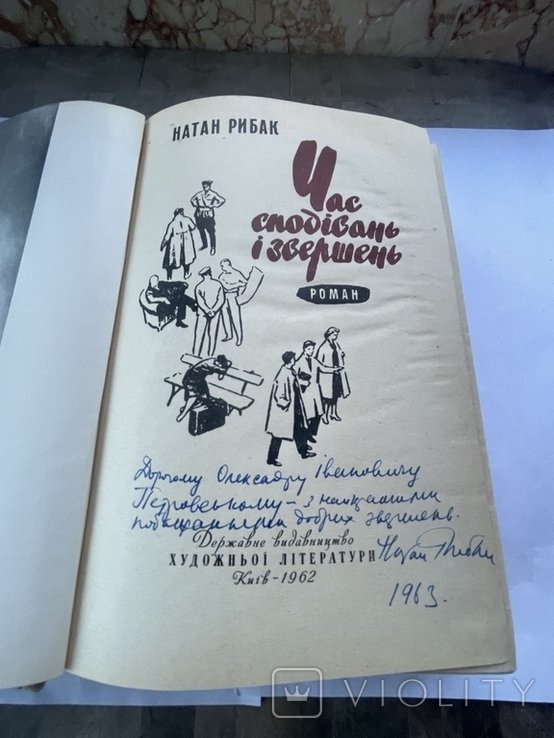 НАТАН РИБАК
Час
сподівань
і звершень
РОМАН
Дорогому Олександру Івановичу
Петровському – з найкращими
побажаннями добрих звершень.
Державне видавництво
ХУДОЖНЬОЇ ЛІТЕРАТУРИ
Київ – 1962
Натан Рибак
1963.
VIOLITY